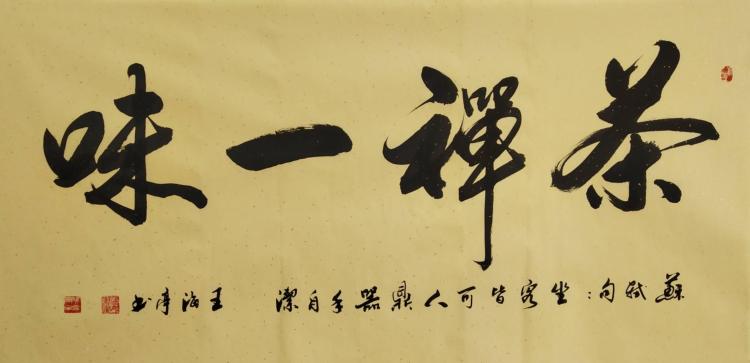 茶禪一味
蘇軾句：坐客皆可人鼎器手自潔 王海书